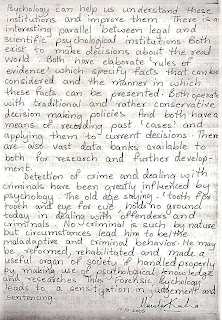 Psychology can help us understand these
institutions and improve them. There is an
interesting parallel between legal and
scientific psychological institutions. Both
exist to make decisions about the real
world. Both have elaborate 'rules of
evidence' which specify facts that can be
considered and the manner in which
these facts can be presented. Both operate
with traditional and rather conservative
decision making policies. And both have a
means of recording past 'cases' and
applying them to current decisions. There
are also vast data banks available to
both for research and further develop-
ment.
Detection of crime and dealing with
criminals have been greatly influenced by
psychology. The old age saying - 'tooth for
tooth and eye for eye' holds no ground
today in dealing with offenders and
criminals. No criminal is such by nature
but circumstances lead him to be
maladaptive and criminal behavior. He may
be reformed, rehabilitated and made a
useful organ of society, if handled properly
by making use of psychological knowledge
and researches. Thus Forensic Psychology
leads to a sensitization in judgement and
sentencing.